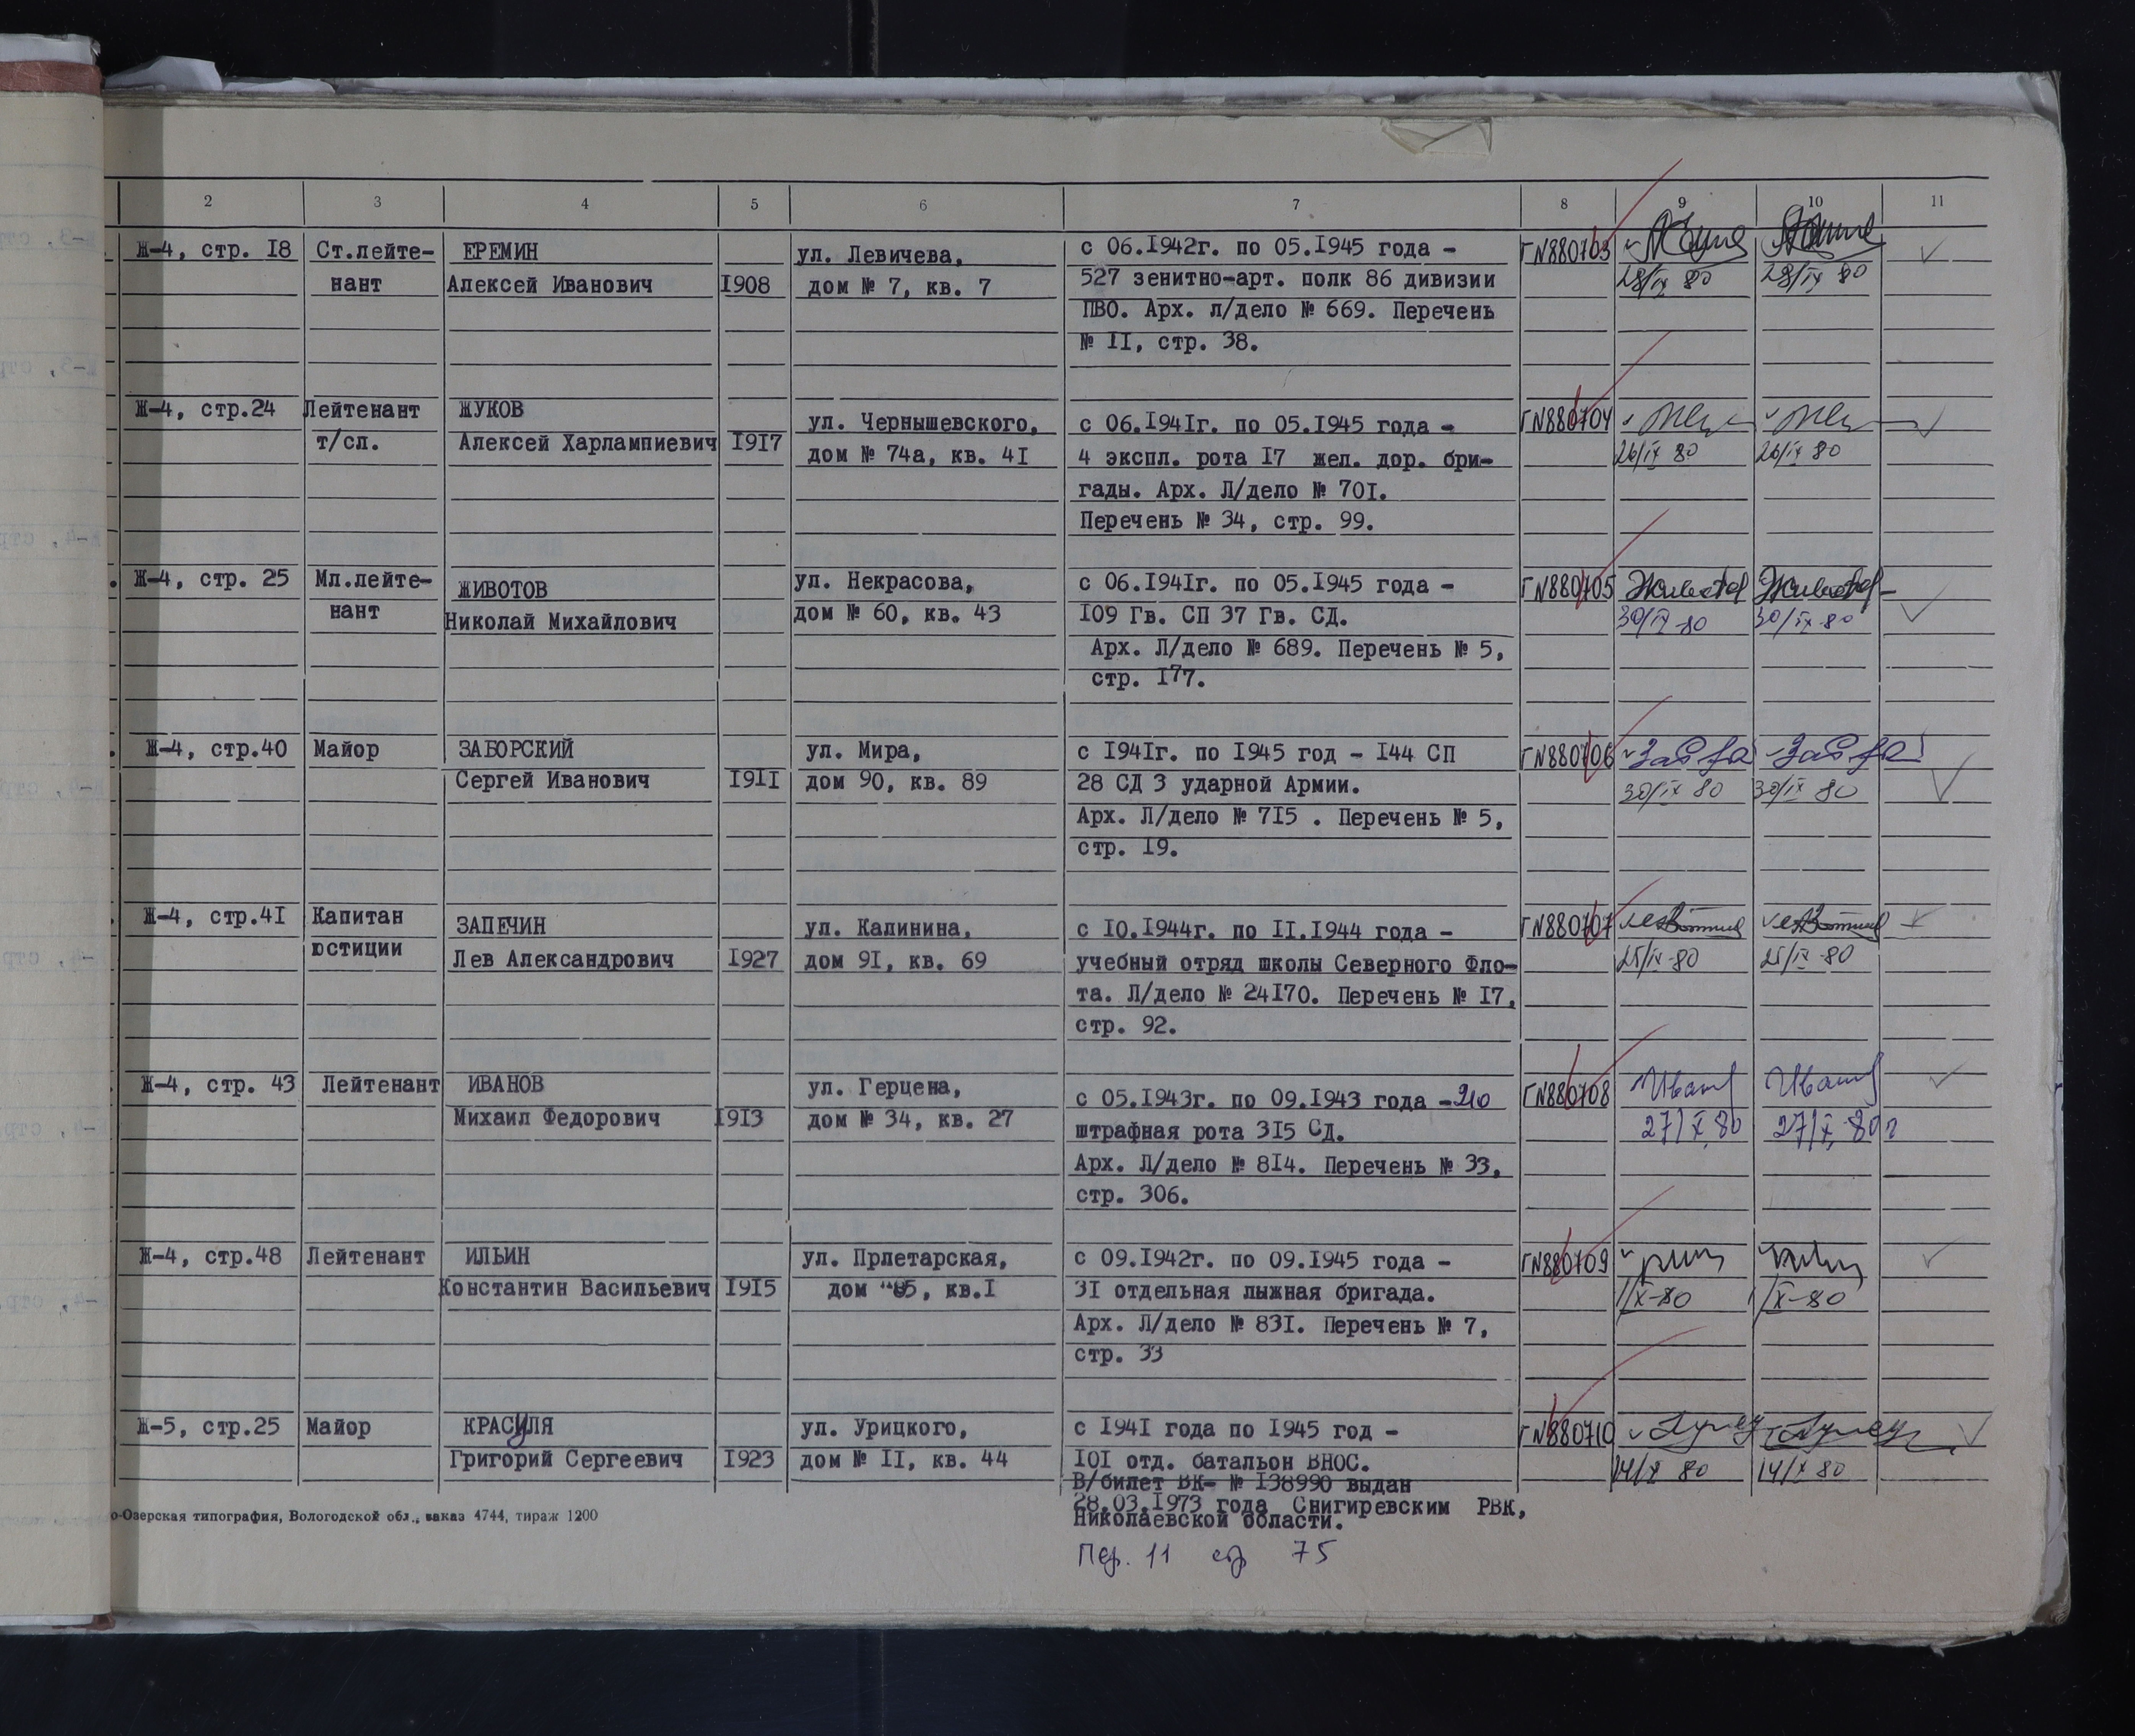 2 3 4 5 6 7 8 9 10 11
Ж-4, стр. I8 Ст.лейте- ЕРЕМИН ул. Левичева, с 06.I942г. по 05.I945 года - ГN880703
нант Алексей Иванович I908 дом № 7, кв. 7 527 зенитно-арт. полк 86 дивизии 28/IX 80 28/IX 80
ПВО. Арх. л/дело № 669. Перечень
№ II, стр. 38.
Ж-4, стр.24 Лейтенант ЖУКОВ ул. Чернышевского, с 06.I94Iг. по 05.I945 года - ГN880704
т/сл. Алексей Харлампиевич I9I7 дом № 74а, кв. 4I 4 экспл. рота I7 жел. дор. бри- 26/IX 80 26/IX 80
гады. Арх. Л/дело № 70I.
Перечень № 34, стр. 99.
Ж-4, стр. 25 Мл.лейте- ЖИВОТОВ ул. Некрасова, с 06.I94Iг. по 05.I945 года - ГN880705 Животов Животов
нант Николай Михайлович дом № 60, кв. 43 I09 Гв. СП 37 Гв. СД. 30/IX-80 30/IX-80
Арх. Л/дело № 689. Перечень № 5,
стр. I77.
Ж-4, стр.40 Майор ЗАБОРСКИЙ ул. Мира, с I94Iг. по I945 год - I44 СП ГN880706
Сергей Иванович I9II дом 90, кв. 89 28 СД 3 ударной Армии. 30/IX 80 30/IX 80
Арх. Л/дело № 7I5 . Перечень № 5,
стр. I9.
Ж-4, стр.4I Капитан ЗАПЕЧИН ул. Калинина, с I0.I944г. по II.I944 года - ГN880707
юстиции Лев Александрович I927 дом 9I, кв. 69 учебный отряд школы Северного Фло- 25/IX-80 25/IX-80
та. Л/дело № 24I70. Перечень № I7,
стр. 92.
Ж-4, стр. 43 Лейтенант ИВАНОВ ул. Герцена, с 05.I943г. по 09.I943 года -210 ГN880708 Иванов Иванов
Михаил Федорович I9I3 дом № 34, кв. 27 штрафная рота 3I5 СД. 27/X 80 27/X-80г
Арх. Л/дело № 8I4. Перечень № 33,
стр. 306.
Ж-4, стр.48 Лейтенант ИЛЬИН ул. Прлетарская, с 09.I942г. по 09.I945 года - ГN880709
Константин Васильевич I9I5 дом кв.I 3I отдельная лыжная бригада. 1/X-80 1/X-80
Арх. Л/дело № 83I. Перечень № 7,
стр. 33
Ж-5, стр.25 Майор КРАСУЛЯ ул. Урицкого, с I94I года по I945 год - ГN880710
Григорий Сергеевич I923 дом № II, кв. 44 I0I отд. батальон ВНОС. 14/X 80 14/X 80
В/билет ВК- № I38990 выдан
28.03.I973 года Снигиревским РВК,
Николаевской области.
о-Озерская типография, Вологодской обл., заказ 4744, тираж 1200
Пер. 11 стр 75